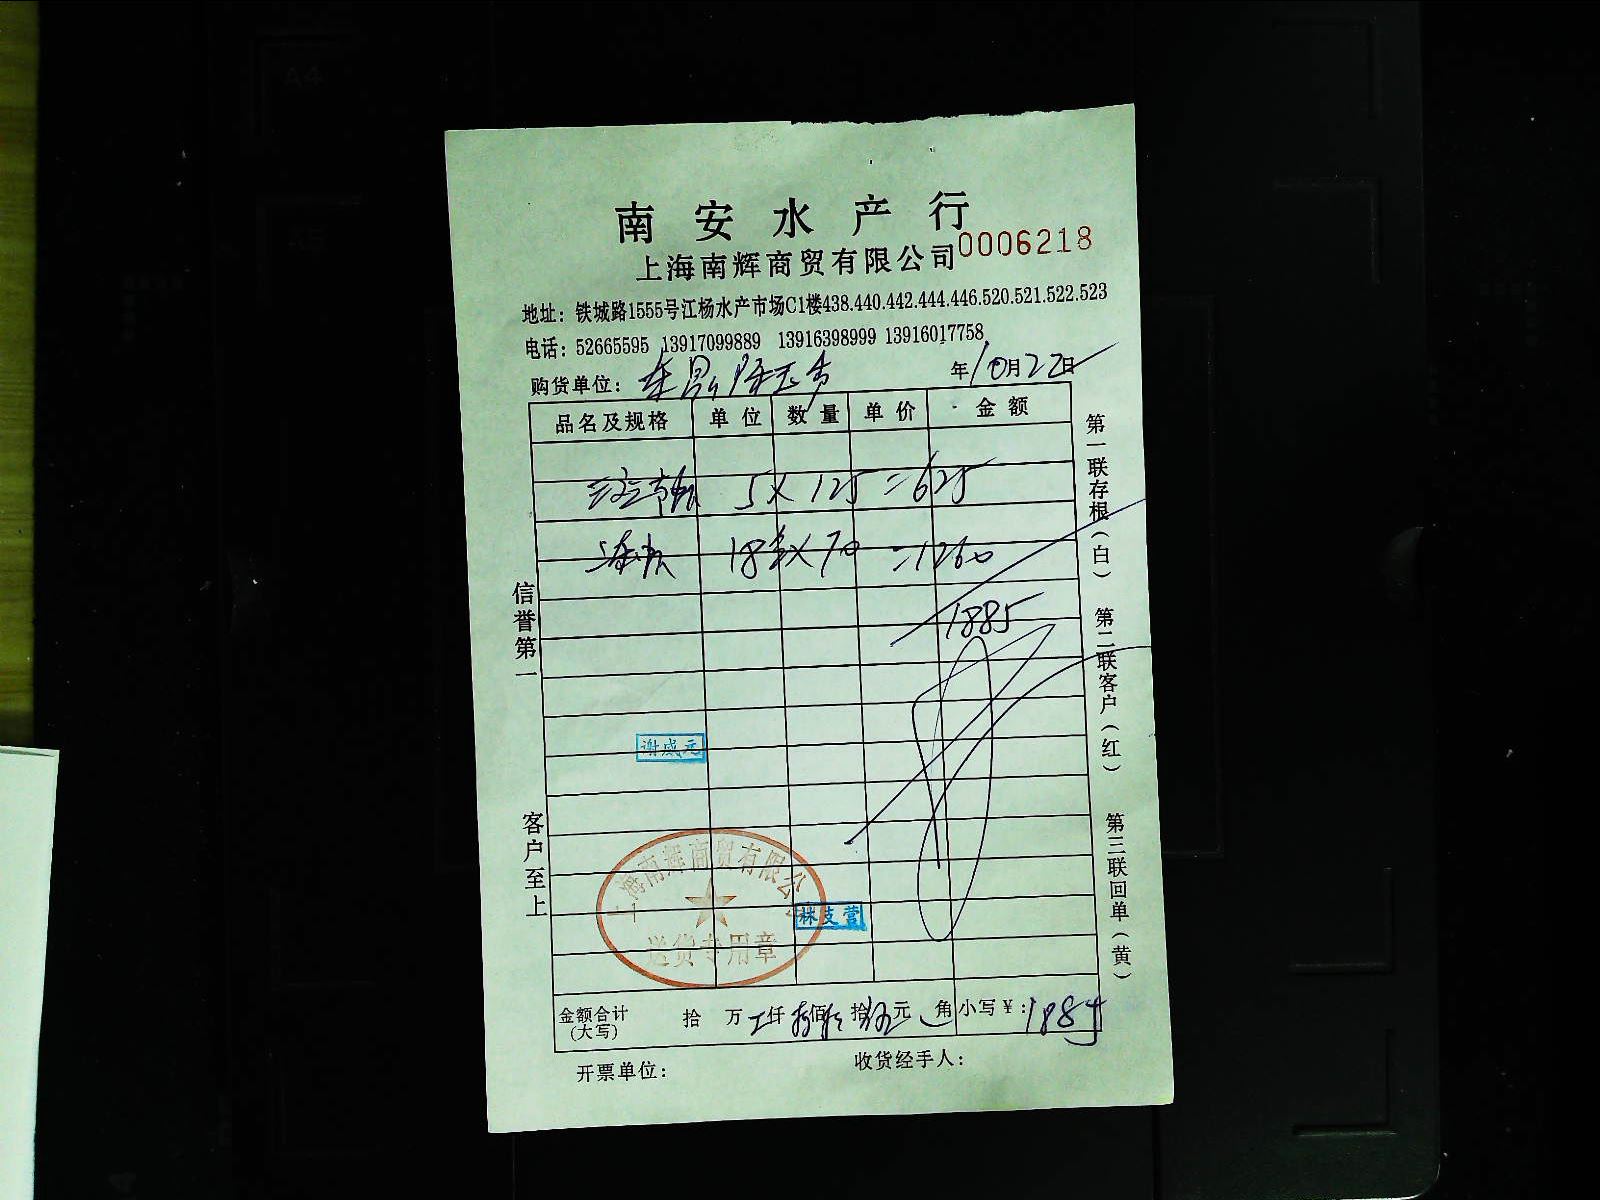 南安水产行
上海南辉商贸有限公司 0006218
地址：铁城路1555号江杨水产市场C1楼438.440.442.444.446.520.521.522.523
电话：52665595 13917099889 13916398999 13916017758
购货单位： 年10月22日
品名及规格 单位 数量 单价 金额
5×125=625
18 ×70=1260
1885
信誉第一
客户至上
第一联存根（白）
第二联客户（红）
第三联回单（黄）
谢成元
上海南辉商贸有限公
送货专用章
林技营
金额合计 拾 万 仟 佰 拾 元 角 小写￥：1885
(大写)
开票单位： 收货经手人：
A4
A5